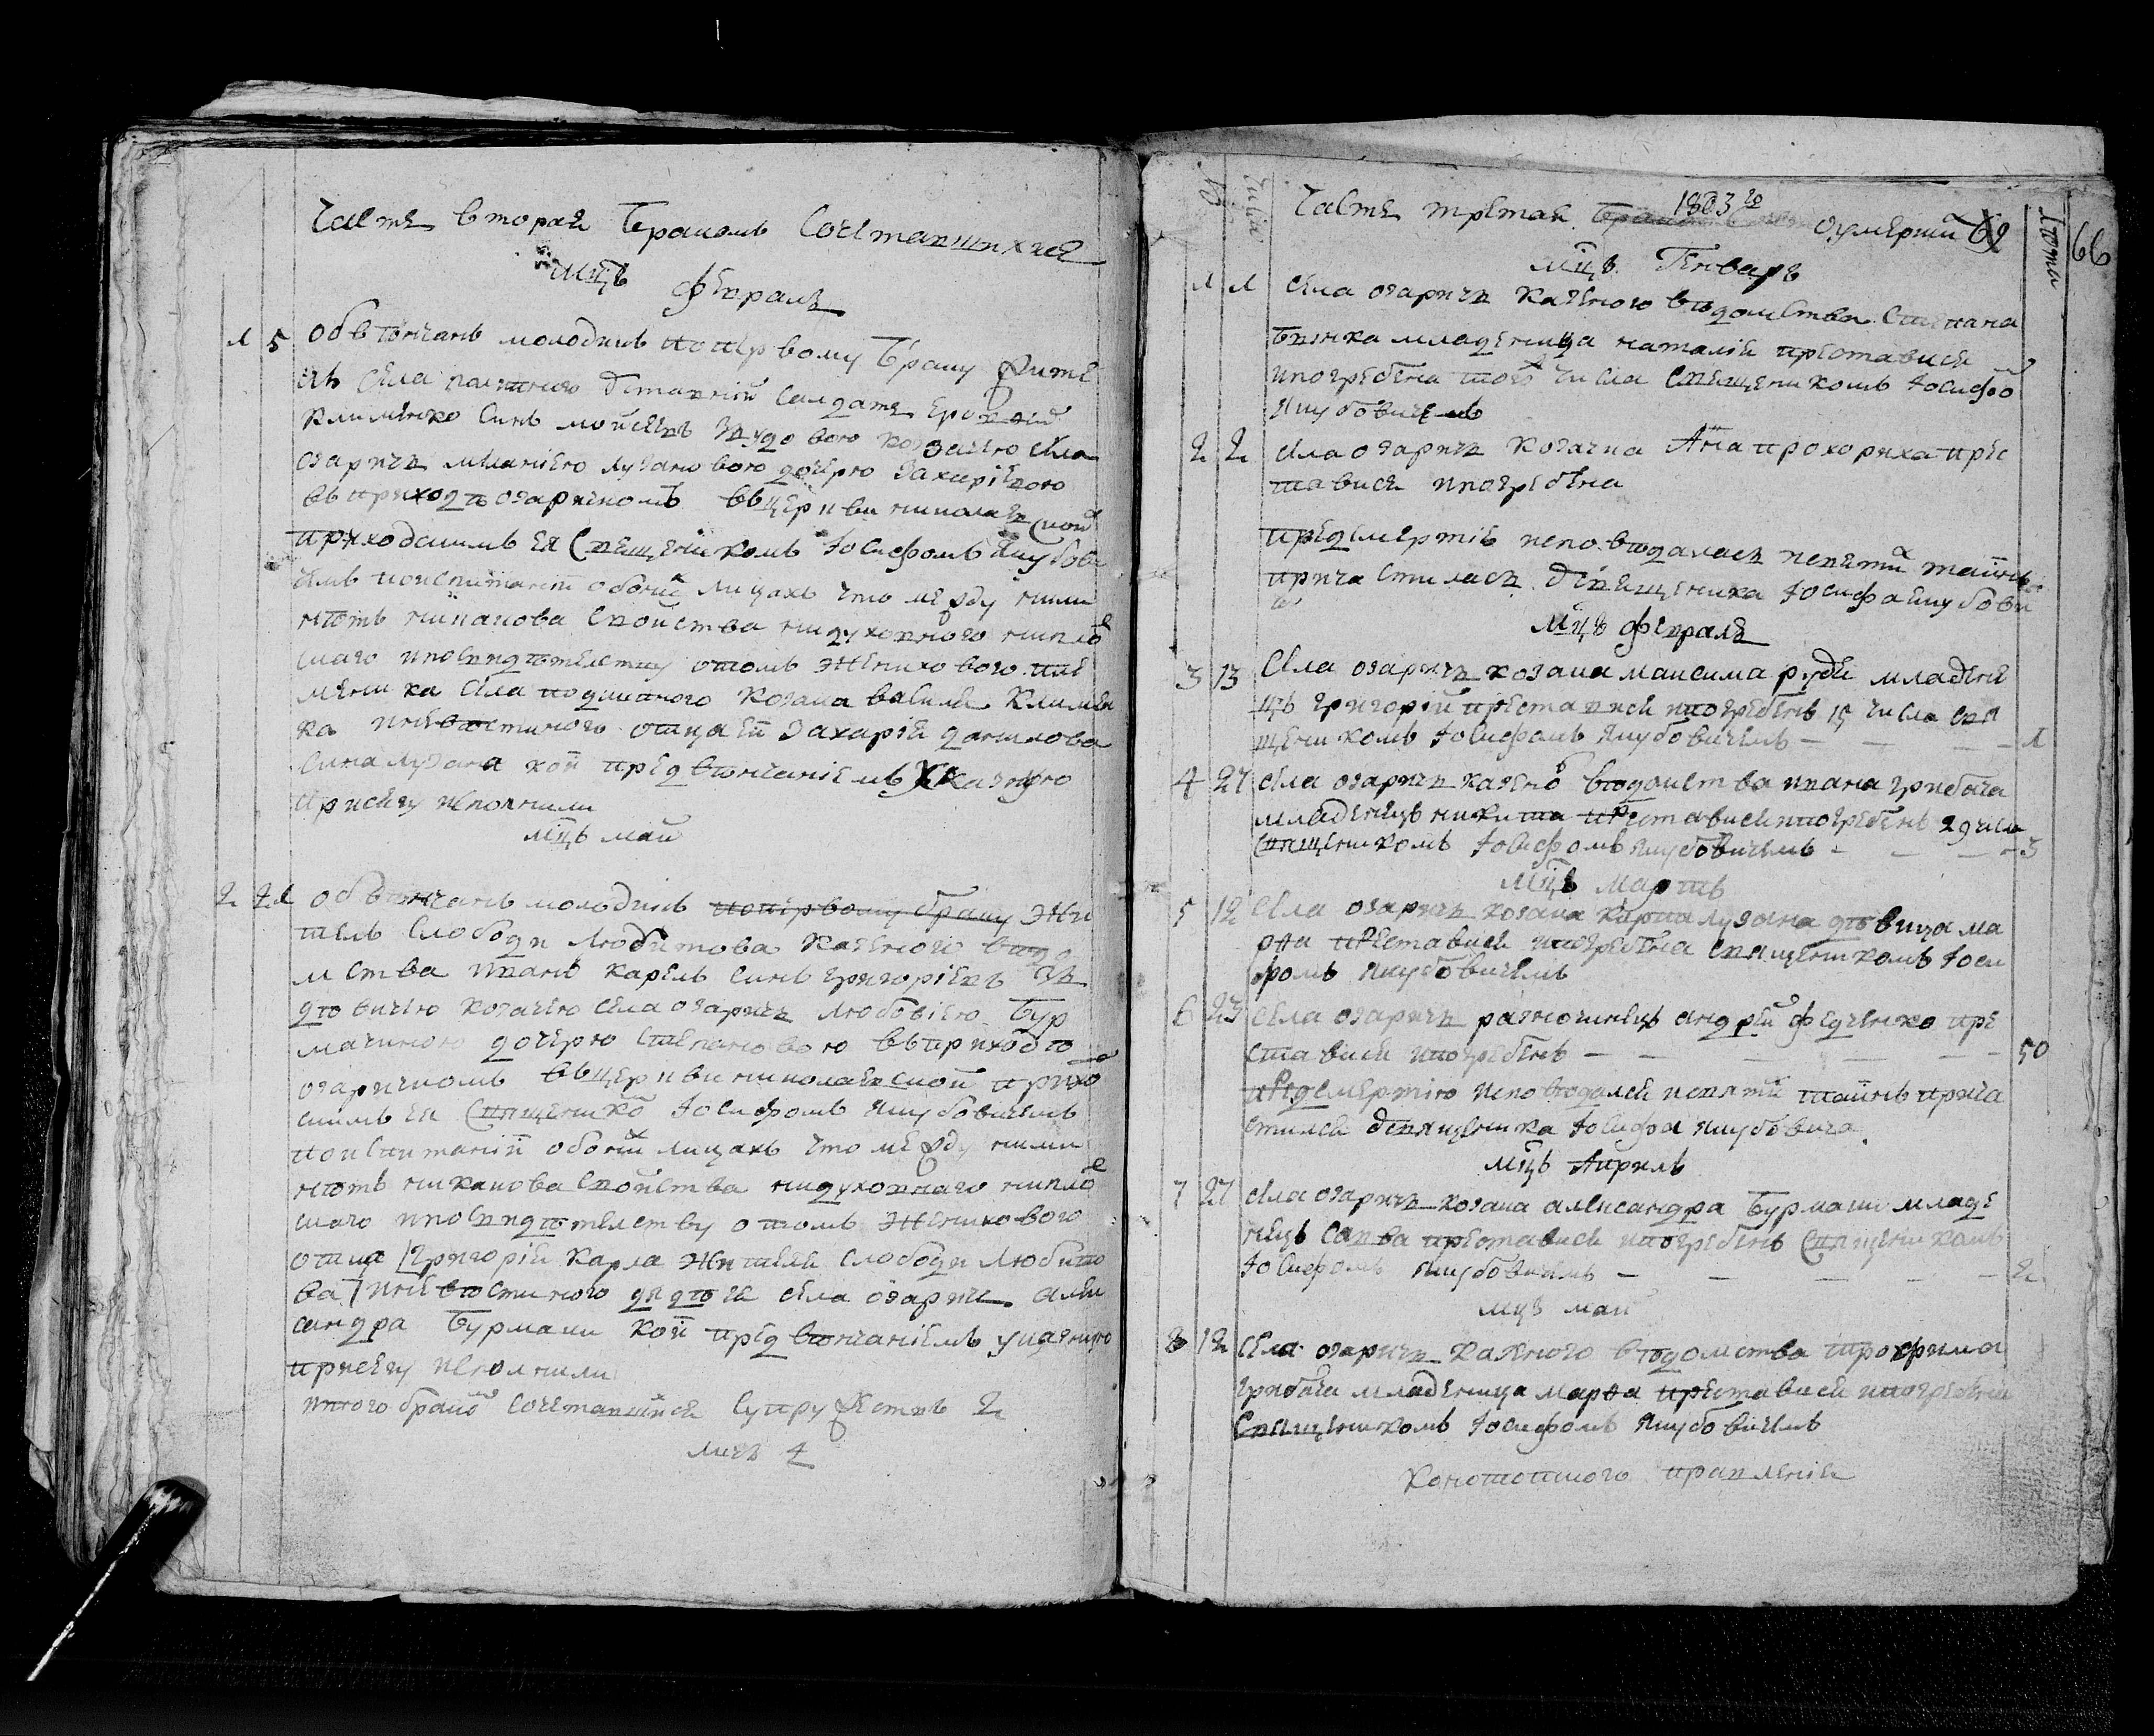 Часть вторая Бракомъ Сочетавшихся
Мцъ февраль
1 5 обвѣнчанъ молодикъ попервому браку жите
ль села отставний салдатъ Ерофей
клименко синъ мойсеевъ зъ вдовою козачкою села
озаричъ меланиею лузановою дочерю захариевою
въ приходѣ озаричкомъ въ церкви николаевской
приходскимъ ея священикомъ Іосифомъ Якубови
чемъ поиспитаніи обоихъ лицахъ что между ними
нѣтъ никакова свойства ни духовного ни плоте
скаго и по свидѣтелству о томъ женихового пле
меника села козака василя клименка
ка и невѣстиного отца ей захарія данилова
сина лузана кои пред вѣнчаніемъ указную
присягу исполнили
мцъ май
2 21 обвѣнчанъ молодикъ попервому браку жи
тель Слободи Любитова казеного вѣдо
мства иванъ карель синъ григориевъ зъ
дѣвичею козачею села озаричъ любовіею бур
мачиною дочерю Степановою въ приходѣ
озаричкомъ въ церкви николаевской прихо
скимъ ея священикомъ Іосифомъ Якубовичемъ
поиспитаніи обоихъ лицахъ что между ними
нѣтъ никакова свойства ни духовнаго ни плоте
скаго и по свидѣтелству о томъ женихового
отца григорія карла жителя слободи любито
ва и невѣстиного дядѣка села озаричъ алек
сандра бурмаки кои пред вѣнчаніемъ указную
присягу исполнили
итого бракомъ сочетавшийся супружествъ 2
лицъ 4
66
1803 го
Часть третая оумершихъ 69
Число Лѣта
мцъ Генварь
1 1 села озаричъ казеного вѣдомства Степана
младеница наталія преставися
и погребена того числа священикомъ Іосифо
Якубовичемъ
2 2 села озаричъ козачка Анна прохориха прес
тавися и погребена
пред смертію исповѣдалася и святих таинъ
причастиласъ от священика Іосифа Якубови
мцъ февраль
3 13 села озаричъ козака максима рудя младене
цъ григорий преставися и погребенъ 15 числа свя
щеникомъ Іосифомъ Якубовичемъ — — — 1
4 27 села озаричъ казеного вѣдомства ивана грибача
младенецъ никита преставися и погребенъ 29 числа
священикомъ Іосифомъ Якубовичемъ — — — 3
мцъ Мартъ
5 12 села озаричъ козака карпа лузана дѣвица ма
рѳа преставися и погребена священикомъ Іоси
фомъ Якубовичемъ
6 23 села озаричъ разночинецъ андрей федченко пре
ставися и погребенъ — — — — 50
пред смертію исповѣдался и святих таинъ прича
стился от священика Іосифа Якубовича
мцъ Априль
7 27 села озаричъ козака александра бурмаки младе
нецъ савва преставися и погребенъ священикомъ
Іосифомъ Якубовичемъ — — — — 2
мцъ май
8 12 села озаричъ казеного вѣдомства трофима
грибача младеница марѳа преставися и погребена
священикомъ Іосифомъ Якубовичемъ
конотопского правленія